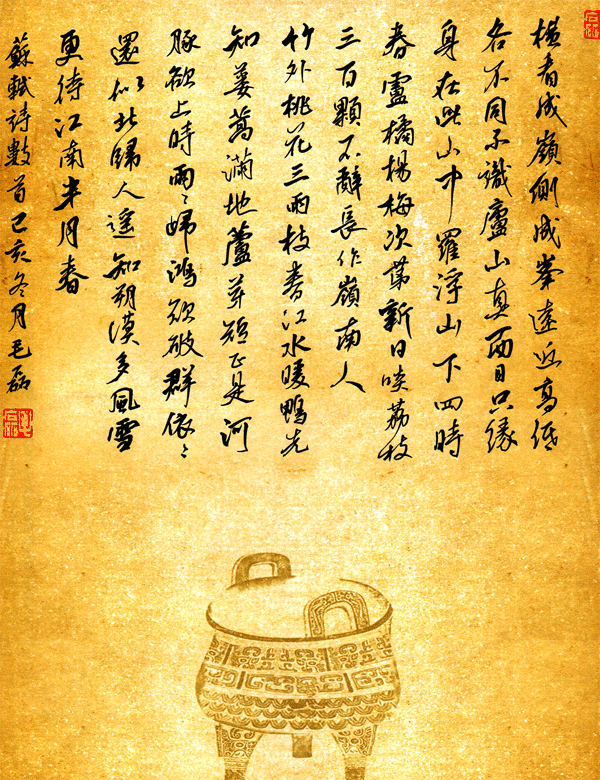 橫看成嶺側成峯遠近高低
各不同不識廬山真面目只緣
身在此山中羅浮山下四時
春盧橘楊梅次第新日啖荔枝
三百顆不辭長作嶺南人
竹外桃花三兩枝春江水暖鴨先
知蔞蒿滿地蘆芽短正是河
豚欲上時兩〻歸鴻欲破群依〻
還似北歸人遙知朔漠多風雪
更待江南半月春
蘇軾詩數首己亥冬月毛磊